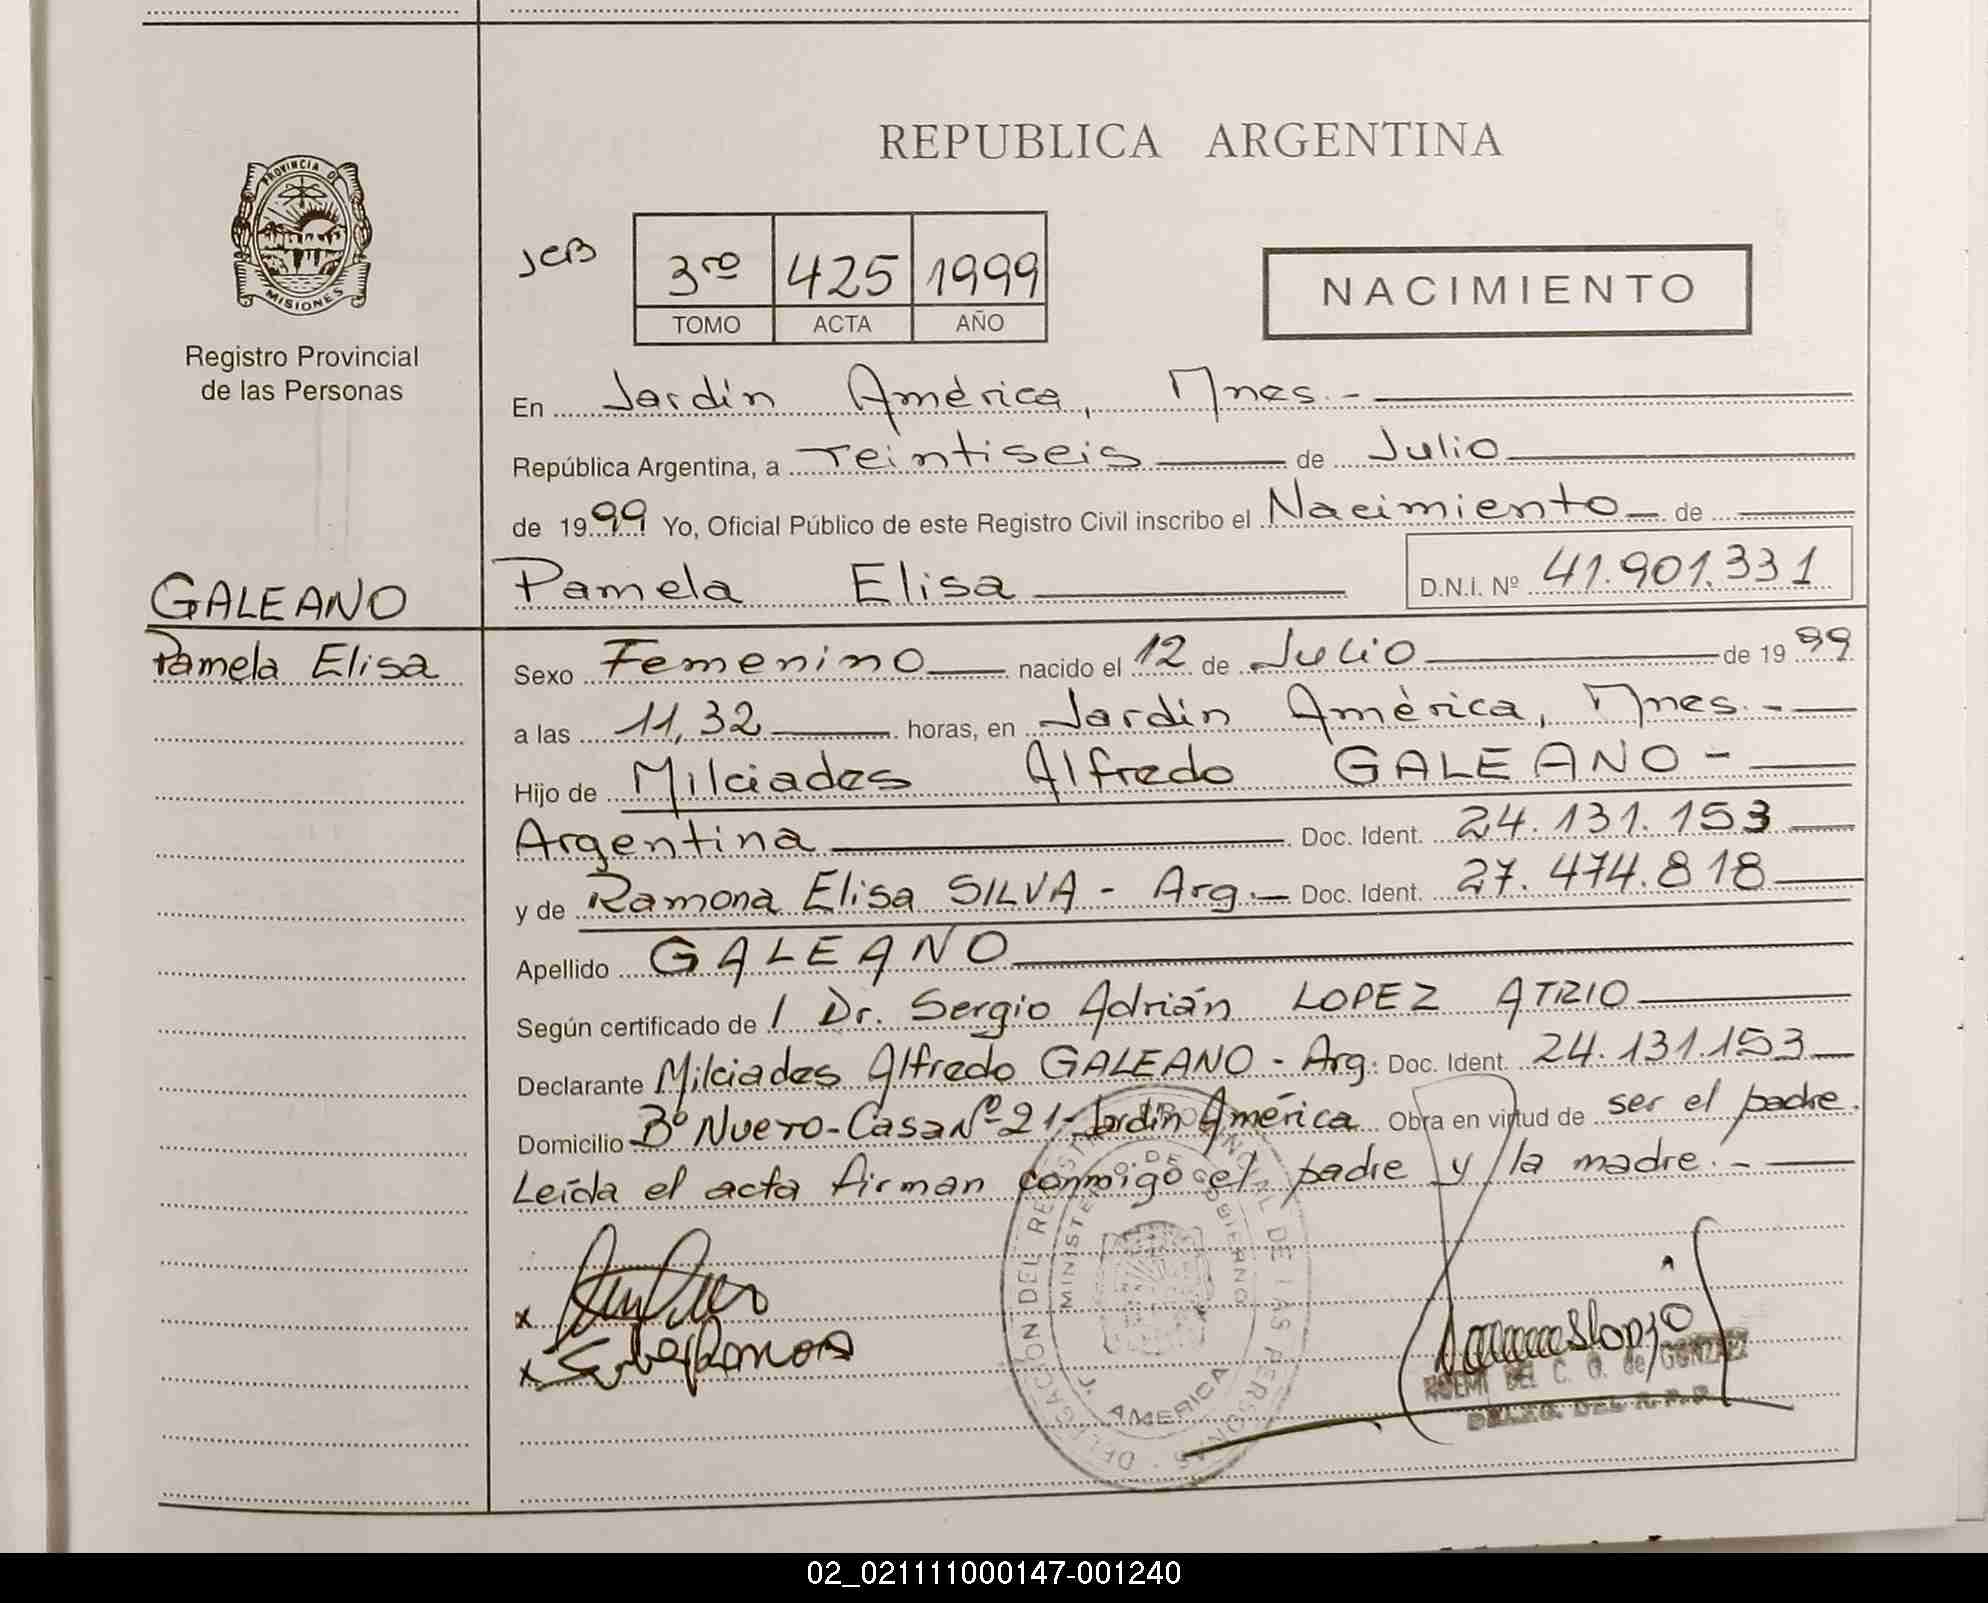 REPUBLICA ARGENTINA
PROVINCIA DE
MISIONES
Registro Provincial
de las Personas
JCB
3ro 425 1999
TOMO ACTA AÑO
NACIMIENTO
En Jardín América, Mnes.-
República Argentina, a veintiseis de Julio
de 1999 Yo, Oficial Público de este Registro Civil inscribo el Nacimiento de
GALEANO
Pamela Elisa
Pamela Elisa D.N.I. Nº 41.901.331
Sexo Femenino nacido el 12 de Julio de 1999
a las 11,32 horas, en Jardín América, Mnes.-
Hijo de Milciades Alfredo GALEANO-
Argentina Doc. Ident. 24.131.153
y de Ramona Elisa SILVA - Arg.- Doc. Ident. 27.474.818
Apellido GALEANO
Según certificado de / Dr. Sergio Adrián LOPEZ ATRIO
Declarante Milciades Alfredo GALEANO - Arg. Doc. Ident. 24.131.153
Domicilio Bº Nuevo-Casa Nº 21-Jardín América Obra en virtud de ser el padre.
Leída el acta firman conmigo el padre y la madre.-
DELEGACION DEL REGISTRO PROVINCIAL DE LAS PERSONAS
MINISTERIO DE GOBIERNO
J. AMERICA
x
x
NOEMI DEL C. O. de GONZALEZ
DELEG. DEL R.P.P.
02_021111000147-001240